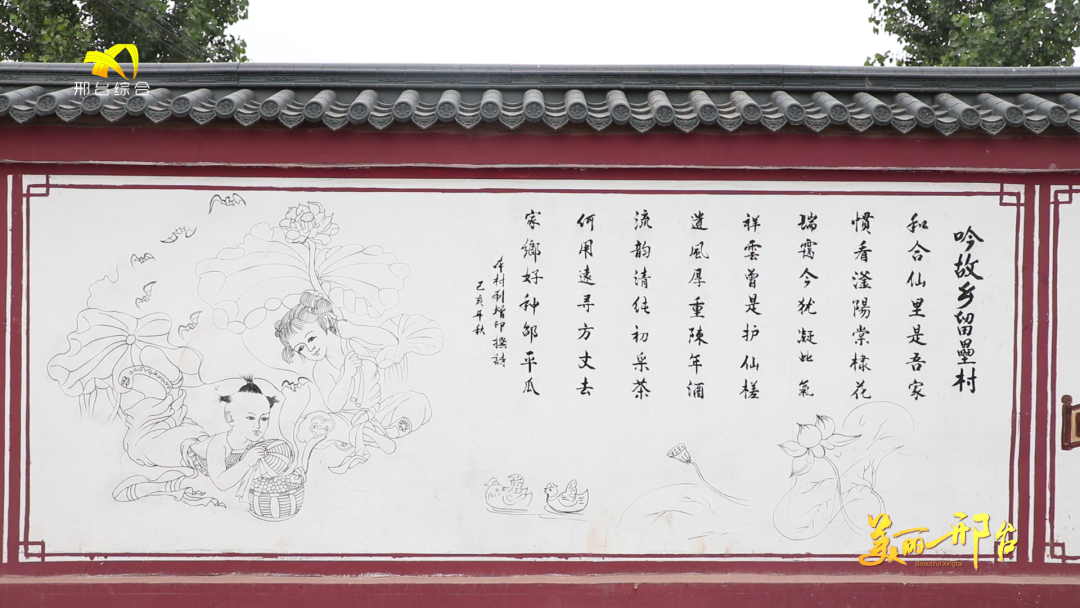 邢台综合
吟故乡留壘村
和合仙里是吾家
惯看滏陽棠棣花
瑞靄今犹凝此氣
祥雲曾是护仙槎
遗風厚重陳年酒
流韵清纯初采茶
何用遠寻方丈去
家鄉好种邵平瓜
本村刘增印撰詩
己亥年秋
美丽邢台
Beautiful Xingtai